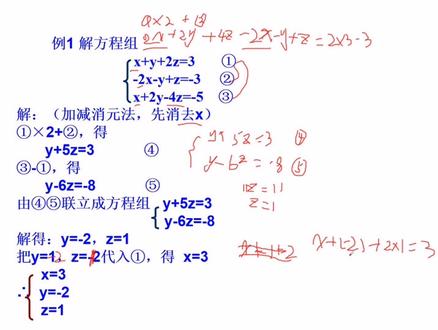 ①×2+②
2x+2y+4z-2x-y+z=2×3-3
例1 解方程组
x+y+2z=3 ①
-2x-y+z=-3 ②
x+2y-4z=-5 ③
解：（加减消元法，先消去x）
①×2+②，得
y+5z=3 ④
③-①，得
y-6z=-8 ⑤
y+5z=3 ④
y-6z=-8 ⑤
11z=11
z=1
由④⑤联立成方程组 y+5z=3
y-6z=-8
解得：y=-2，z=1
把y=1，z=-2代入①，得 x=3
x+(-2)+2×1=3
∴ x=3
y=-2
z=1